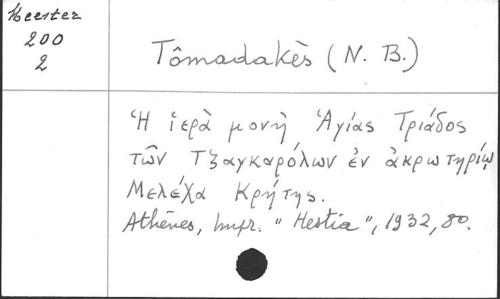 Meester
200
2
Tômadakès (N. B.)
Ἡ ἱερὰ μονὴ Ἁγίας Τριάδος
τῶν Τζαγκαρόλων ἐν ἀκρωτηρίῳ
Μελέχα Κρήτης.
Athènes, Impr. " Hestia ", 1932, 80.